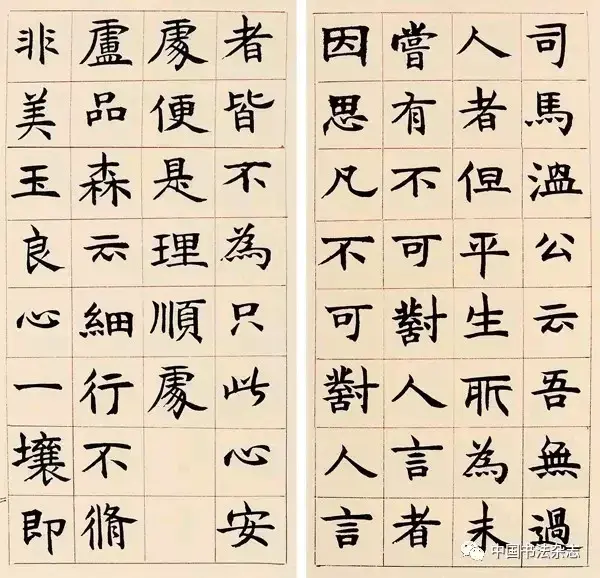 司馬溫公云吾無過
人者但平生所為未
嘗有不可對人言者
因思凡不可對人言
者皆不為只此心安
處便是理順處
盧品森云細行不脩
非美玉良心一壞即
中国书法杂志